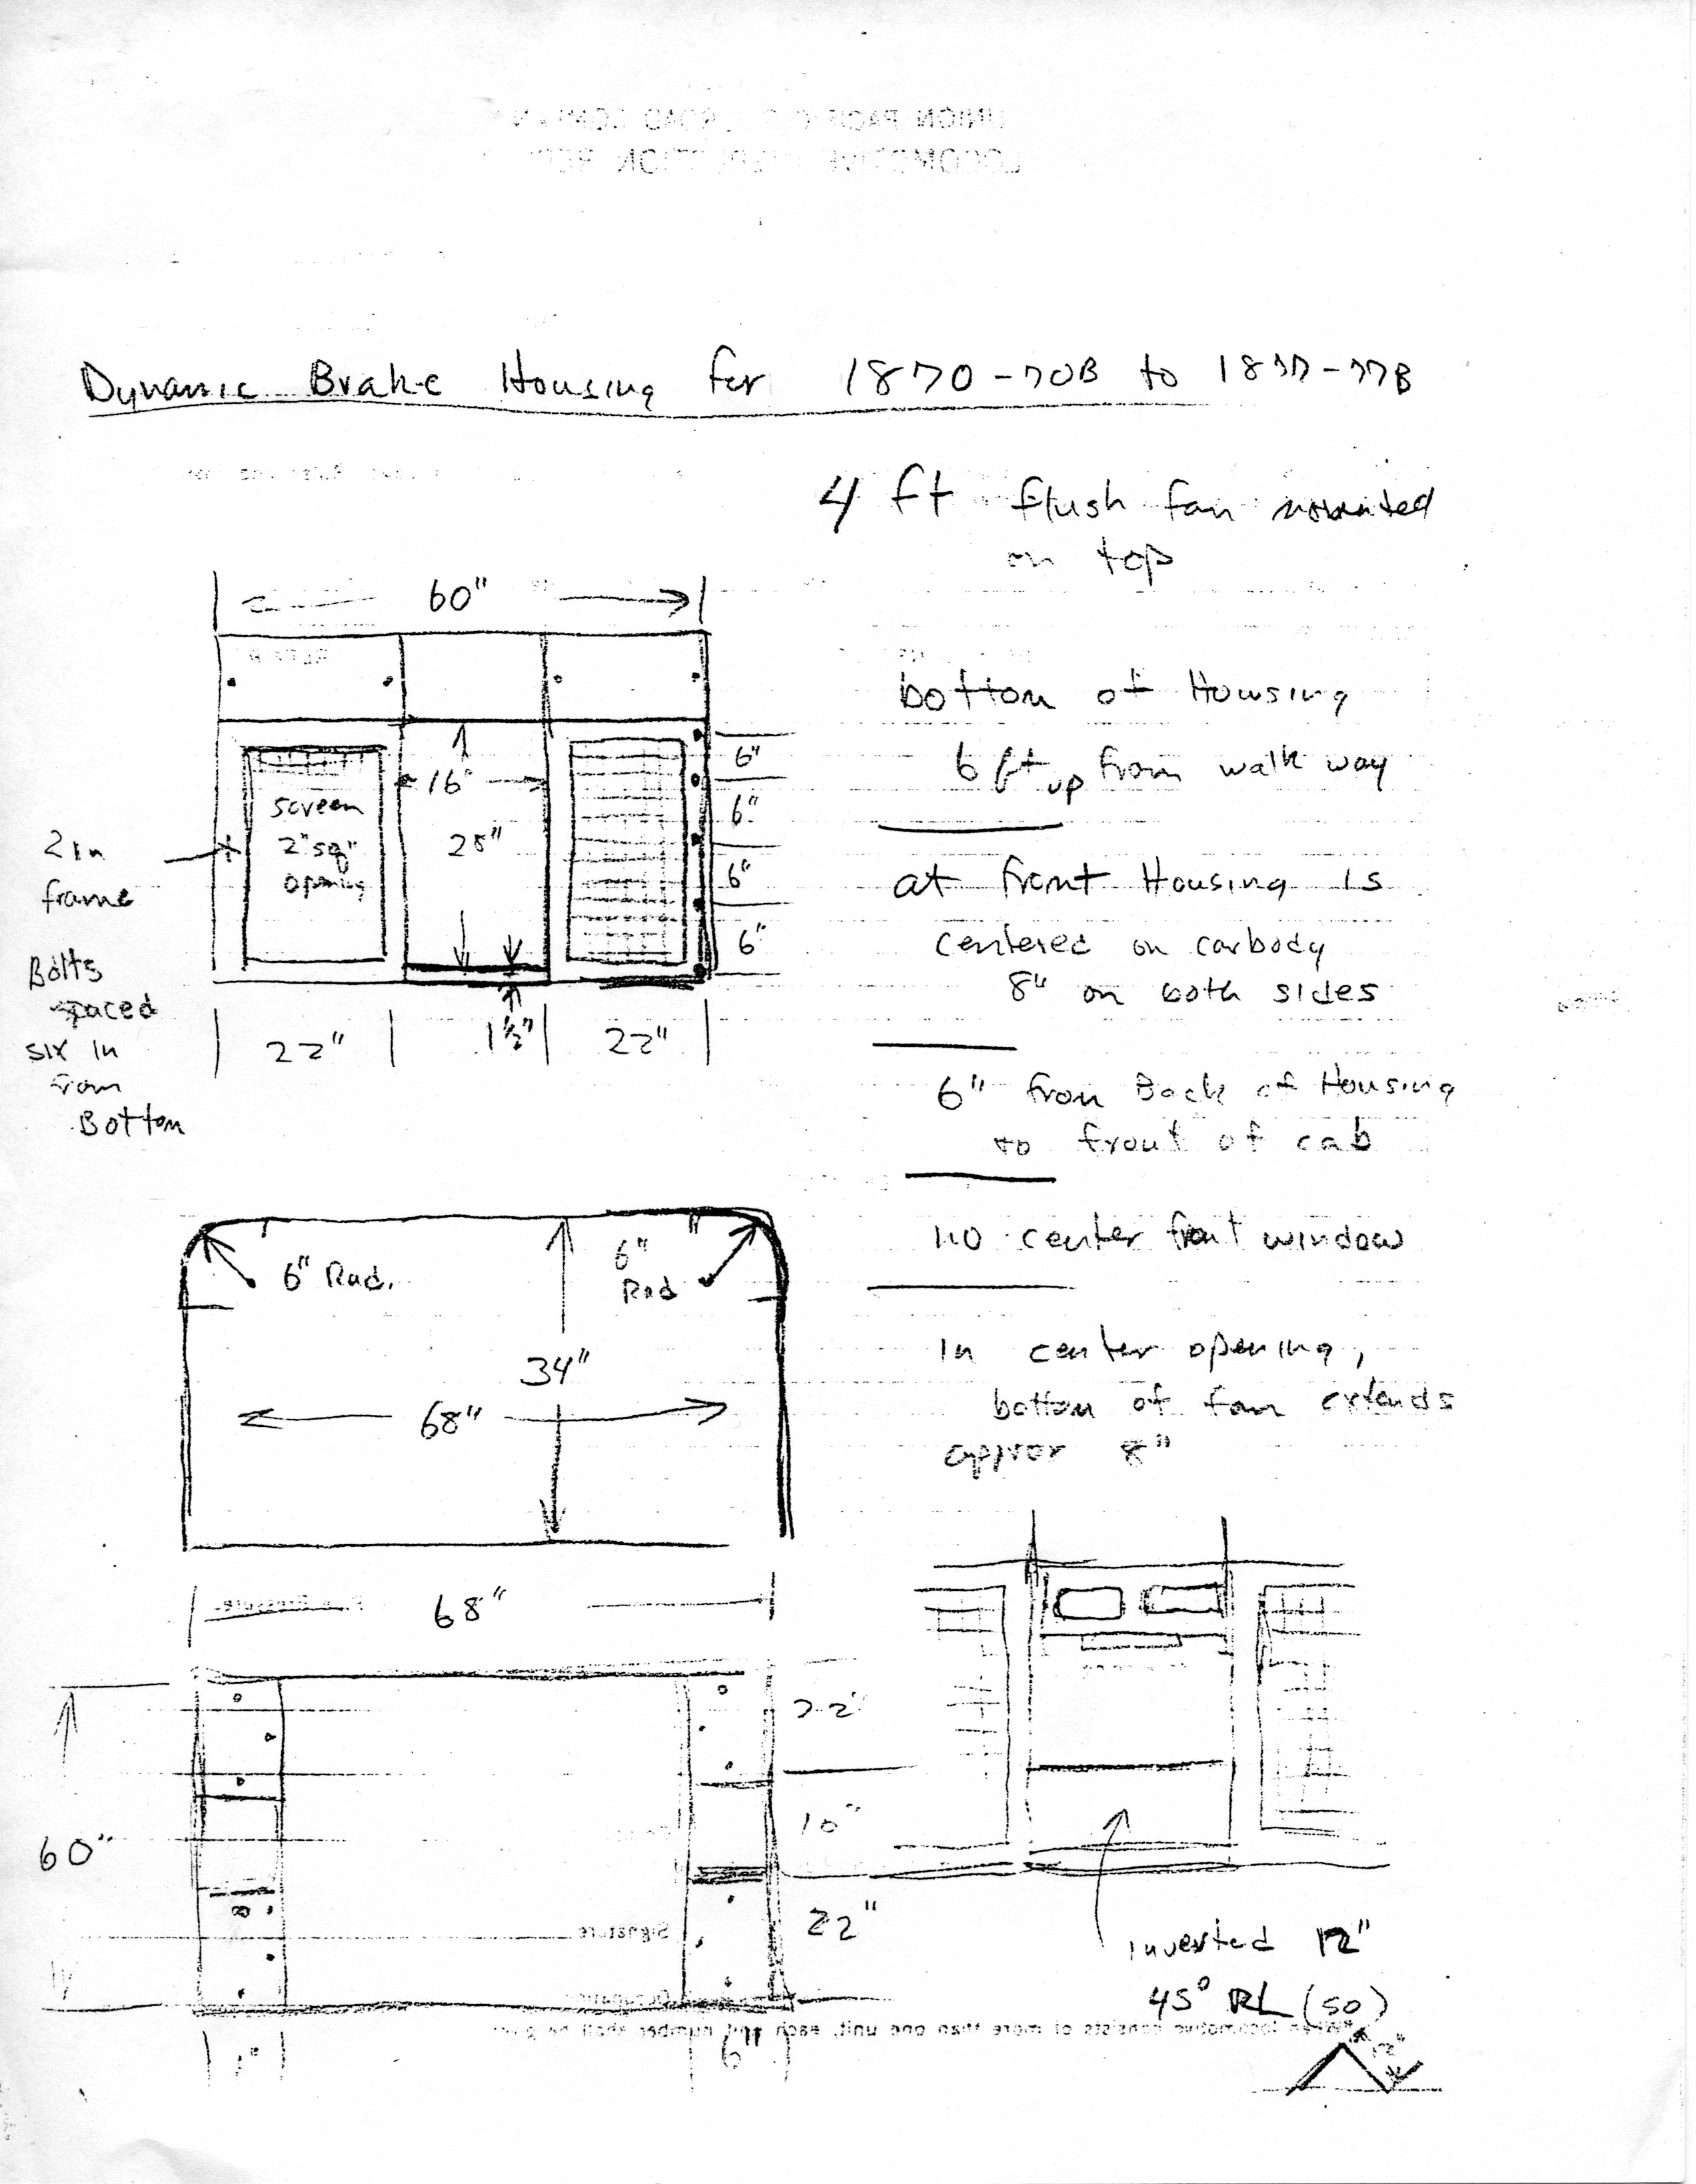 Dynamic Brake Housing for 1870-70B to 1877-77B
4 ft flush fan mounted
on top
60"
bottom of Housing
6 ft up from walk way
16"
28"
screen
2" sq"
opening
6"
6"
6"
6"
2 in
frame
Bolts
spaced
six in
from
Bottom
22"
1½"
22"
at front Housing is
centered on carbody
8" on both sides
6" from Back of Housing
to front of cab
no center front window
In center opening,
bottom of fan extends
approx 8"
6" Rad.
6"
Rad
34"
68"
68"
60"
22"
10"
22"
6"
inverted 12"
45° RL (so)
Signature
When locomotive consists of more than one unit, each unit number shall be